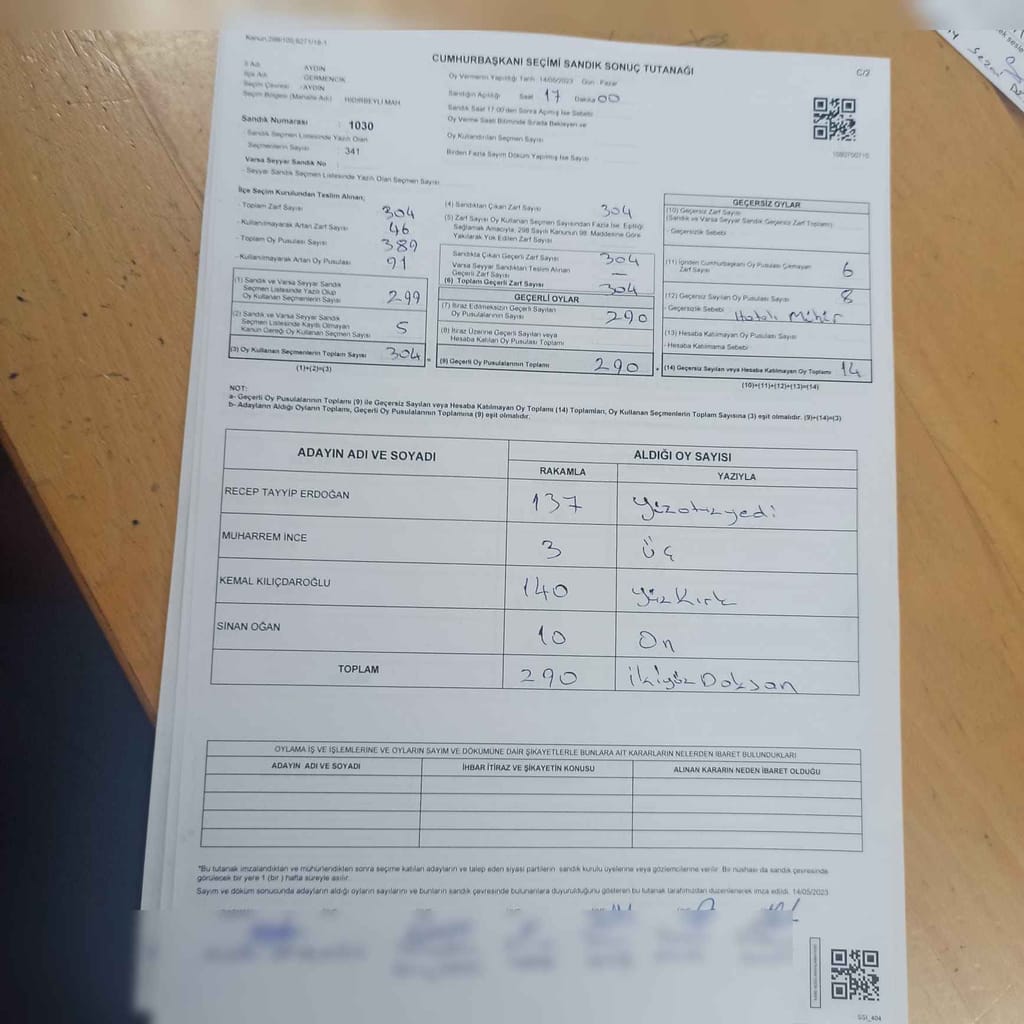 Kanun:298/105,6271/19-1
CUMHURBAŞKANI SEÇİMİ SANDIK SONUÇ TUTANAĞI
C/2
İl Adı : AYDIN
İlçe Adı : GERMENCİK
Seçim Çevresi : AYDIN
Seçim Bölgesi (Mahalle Adı) : HIDIRBEYLİ MAH
Sandık Numarası : 1030
Sandık Seçmen Listesinde Yazılı Olan
Seçmenlerin Sayısı : 341
Varsa Seyyar Sandık No
Seyyar Sandık Seçmen Listesinde Yazılı Olan Seçmen Sayısı
Oy Vermenin Yapıldığı Tarih: 14/05/2023 Gün : Pazar
Sandığın Açıldığı Saat 17 Dakika 00
Sandık Saat 17:00'den Sonra Açılmış İse Sebebi
Oy Verme Saati Bitiminde Sırada Bekleyen ve
Oy Kullandırılan Seçmen Sayısı
Birden Fazla Sayım Döküm Yapılmış İse Sayısı
İlçe Seçim Kurulundan Teslim Alınan;
- Toplam Zarf Sayısı 304
- Kullanılmayarak Artan Zarf Sayısı 46
- Toplam Oy Pusulası Sayısı 389
- Kullanılmayarak Artan Oy Pusulası 91
(1) Sandık ve Varsa Seyyar Sandık
Seçmen Listesinde Yazılı Olup
Oy Kullanan Seçmenlerin Sayısı 299
(2) Sandık ve Varsa Seyyar Sandık
Seçmen Listesinde Kayıtlı Olmayan
Kanun Gereği Oy Kullanan Seçmen Sayısı 5
(3) Oy Kullanan Seçmenlerin Toplam Sayısı 304 =
(1)+(2)=(3)
(4) Sandıktan Çıkan Zarf Sayısı 304
(5) Zarf Sayısı Oy Kullanan Seçmen Sayısından Fazla İse, Eşitliği
Sağlamak Amacıyla, 298 Sayılı Kanunun 98. Maddesine Göre
Yakılarak Yok Edilen Zarf Sayısı
Sandıkta Çıkan Geçerli Zarf Sayısı 304
Varsa Seyyar Sandıktan Teslim Alınan
Geçerli Zarf Sayısı —
(6) Toplam Geçerli Zarf Sayısı 304
GEÇERLİ OYLAR
(7) İtiraz Edilmeksizin Geçerli Sayılan
Oy Pusulalarının Sayısı 290
(8) İtiraz Üzerine Geçerli Sayılan veya
Hesaba Katılan Oy Pusulası Toplamı
(9) Geçerli Oy Pusulalarının Toplamı 290 +
GEÇERSİZ OYLAR
(10) Geçersiz Zarf Sayısı
(Sandık ve Varsa Seyyar Sandık Geçersiz Zarf Toplamı)
- Geçersizlik Sebebi
(11) İçinden Cumhurbaşkanı Oy Pusulası Çıkmayan
Zarf Sayısı 6
(12) Geçersiz Sayılan Oy Pusulası Sayısı 8
- Geçersizlik Sebebi Hatalı Mühür
(13) Hesaba Katılmayan Oy Pusulası Sayısı
- Hesaba Katılmama Sebebi
(14) Geçersiz Sayılan veya Hesaba Katılmayan Oy Toplamı 14
(10)+(11)+(12)+(13)=(14)
NOT:
a- Geçerli Oy Pusulalarının Toplamı (9) ile Geçersiz Sayılan veya Hesaba Katılmayan Oy Toplamı (14) Toplamları, Oy Kullanan Seçmenlerin Toplam Sayısına (3) eşit olmalıdır. (9)+(14)=(3)
b- Adayların Aldığı Oyların Toplamı, Geçerli Oy Pusulalarının Toplamına (9) eşit olmalıdır.
ADAYIN ADI VE SOYADI ALDIĞI OY SAYISI
RAKAMLA YAZIYLA
RECEP TAYYİP ERDOĞAN 137 Yüzotuzyedi
MUHARREM İNCE 3 Üç
KEMAL KILIÇDAROĞLU 140 Yüz Kırk
SİNAN OĞAN 10 On
TOPLAM 290 İkiyüz Doksan
OYLAMA İŞ VE İŞLEMLERİNE VE OYLARIN SAYIM VE DÖKÜMÜNE DAİR ŞİKAYETLERLE BUNLARA AİT KARARLARIN NELERDEN İBARET BULUNDUKLARI
ADAYIN ADI VE SOYADI İHBAR İTİRAZ VE ŞİKAYETİN KONUSU ALINAN KARARIN NEDEN İBARET OLDUĞU
*Bu tutanak imzalandıktan ve mühürlendikten sonra seçime katılan adayların ve talep eden siyasi partilerin sandık kurulu üyelerine veya gözlemcilerine verilir. Bir nüshası da sandık çevresinde
görülecek bir yere 1 (bir) hafta süreyle asılır.
Sayım ve döküm sonucunda adayların aldığı oyların sayılarını ve bunların sandık çevresinde bulunanlara duyurulduğunu gösteren bu tutanak tarafımızdan düzenlenerek imza edildi. 14/05/2023
SSI_404